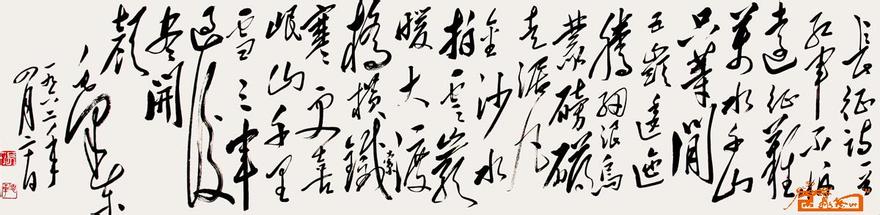 长征诗一首
红军不怕
远征难
万水千山
只等闲
五岭逶迤
腾细浪乌
蒙磅礴
走泥丸
金沙水
拍云崖
暖大渡
桥横铁索
寒更喜
岷山千里
雪三军
过后
尽开
颜
毛泽东
一九六二年
四月二十日